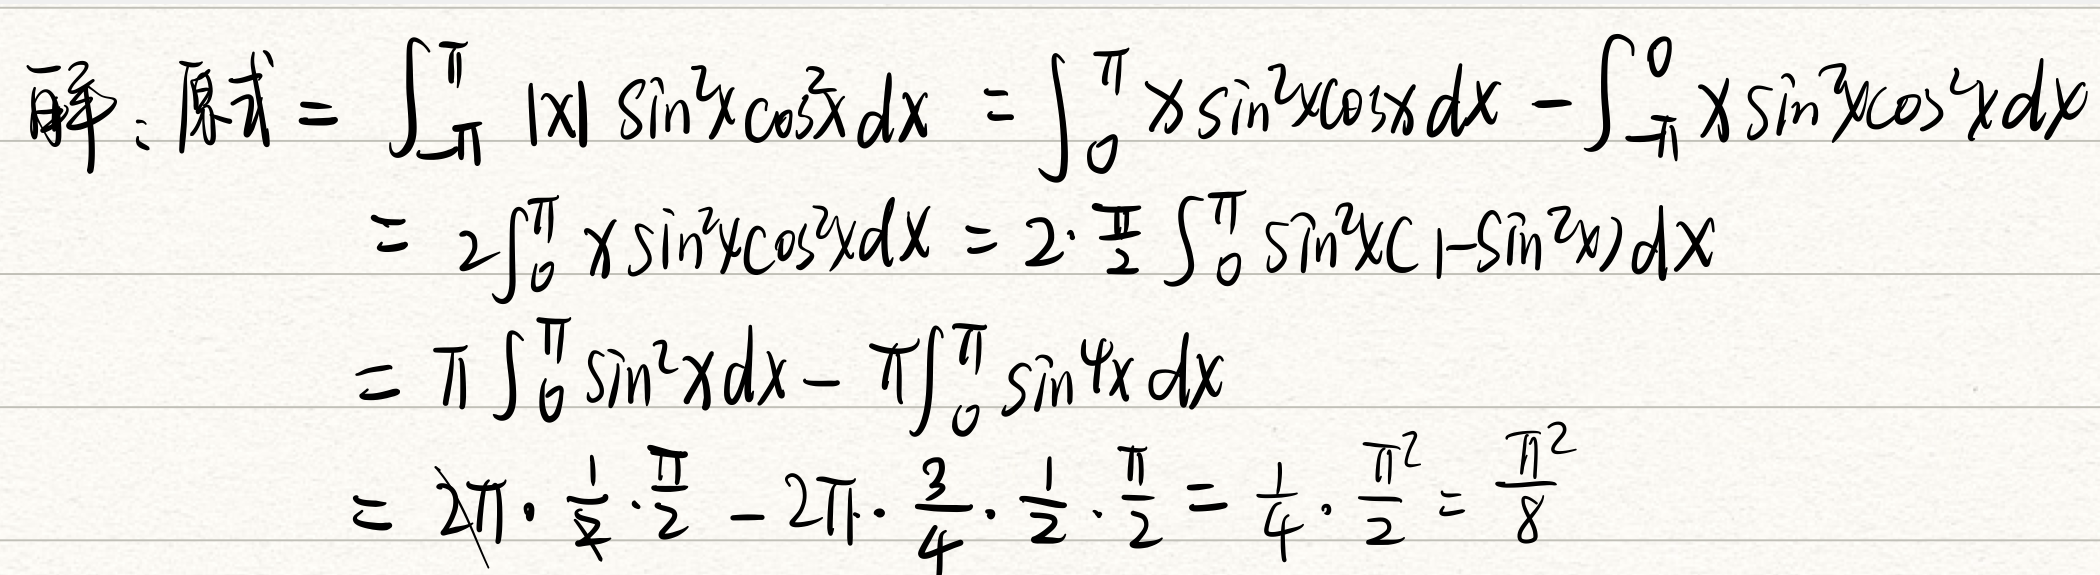 解：原式 = ∫_{-π}^{π} |x| sin²x cos²x dx = ∫_0^π x sin²x cosx dx - ∫_{-π}^0 x sin²x cos²x dx
= 2∫_0^π x sin²x cos²x dx = 2·π/2 ∫_0^π sin²x(1-sin²x)dx
= π∫_0^π sin²x dx - π∫_0^π sin⁴x dx
= 2π·1/2·π/2 - 2π·3/4·1/2·π/2 = 1/4·π²/2 = π²/8